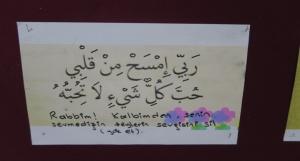 رَبِّي إِمْسَحْ مِنْ قَلْبِي
حُبَّ كُلِّ شَيْءٍ لَا تُحِبُّهُ
Rabbim! Kalbimden, senin
sevmediğin şeylerin sevgisini sil
(yok et).